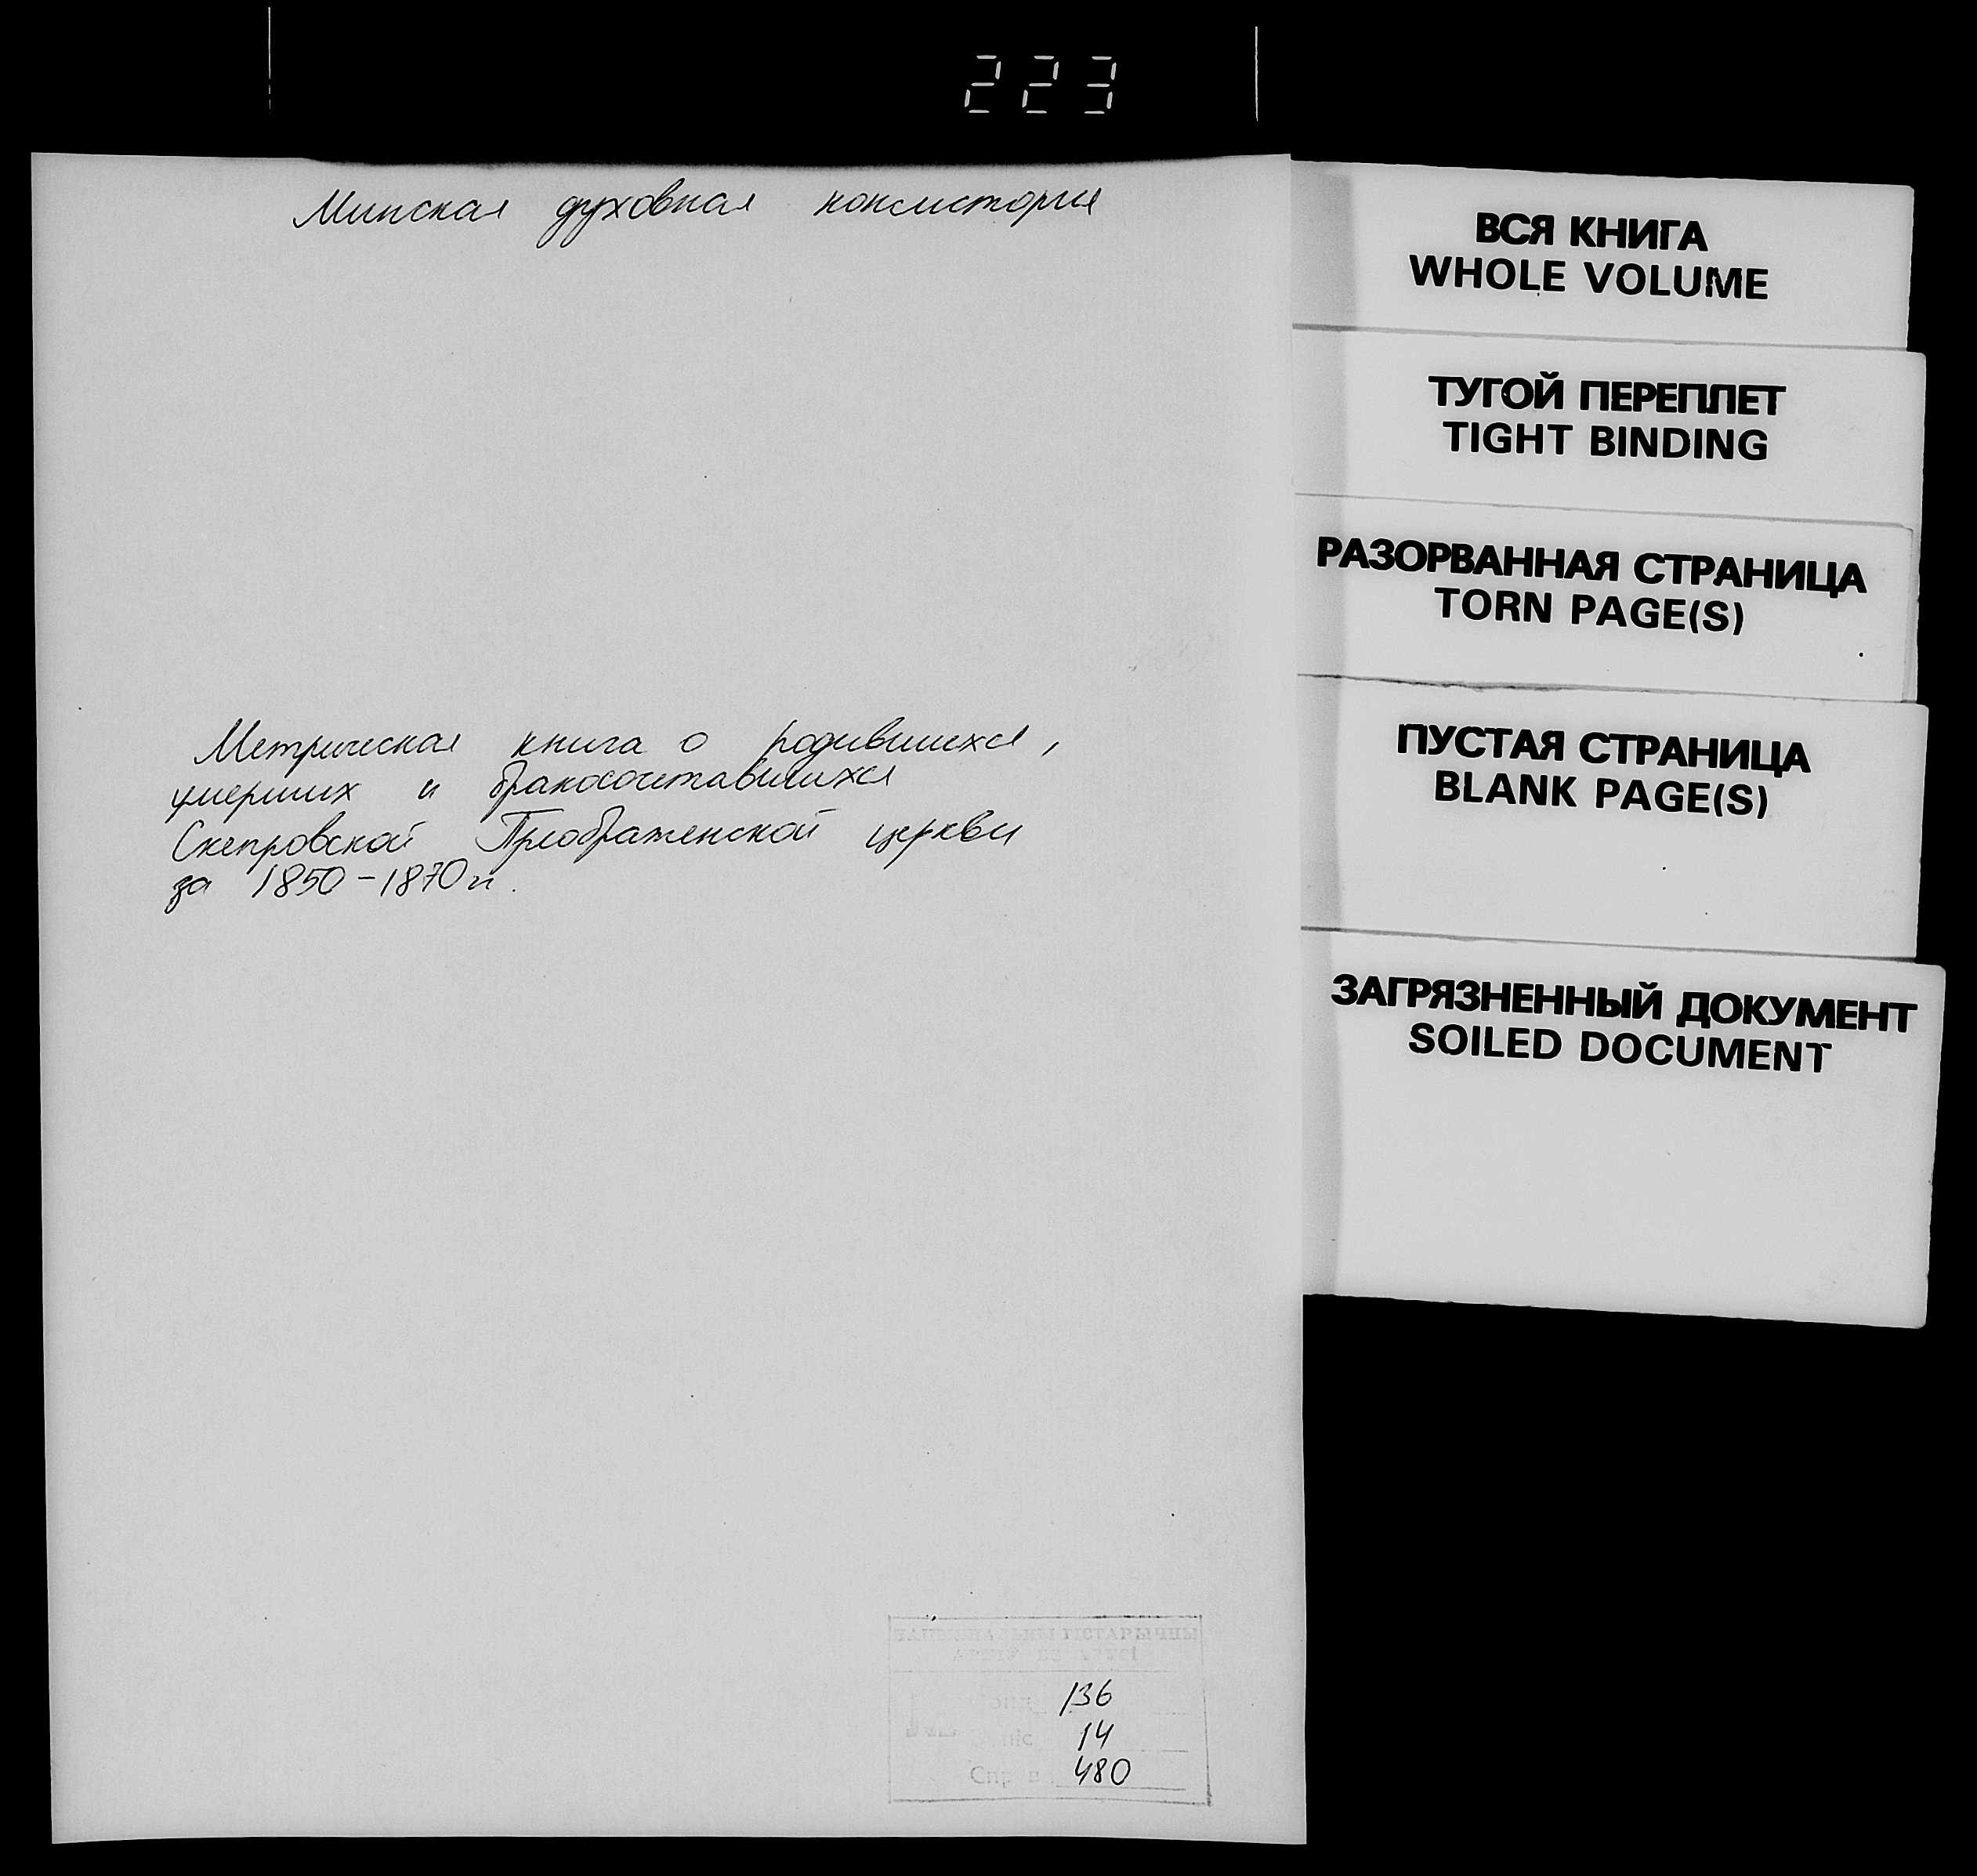 223
Минская духовная консистория
Метрическая книга о родившихся,
умерших и бракосочетавшихся
Скепровской Преображенской церкви
за 1850-1870 гг.
НАЦЫЯНАЛЬНЫ ГІСТАРЫЧНЫ
АРХІЎ БЕЛАРУСІ
Фонд 136
Вопіс 14
Справа 480
ВСЯ КНИГА
WHOLE VOLUME
ТУГОЙ ПЕРЕПЛЕТ
TIGHT BINDING
РАЗОРВАННАЯ СТРАНИЦА
TORN PAGE(S)
ПУСТАЯ СТРАНИЦА
BLANK PAGE(S)
ЗАГРЯЗНЕННЫЙ ДОКУМЕНТ
SOILED DOCUMENT